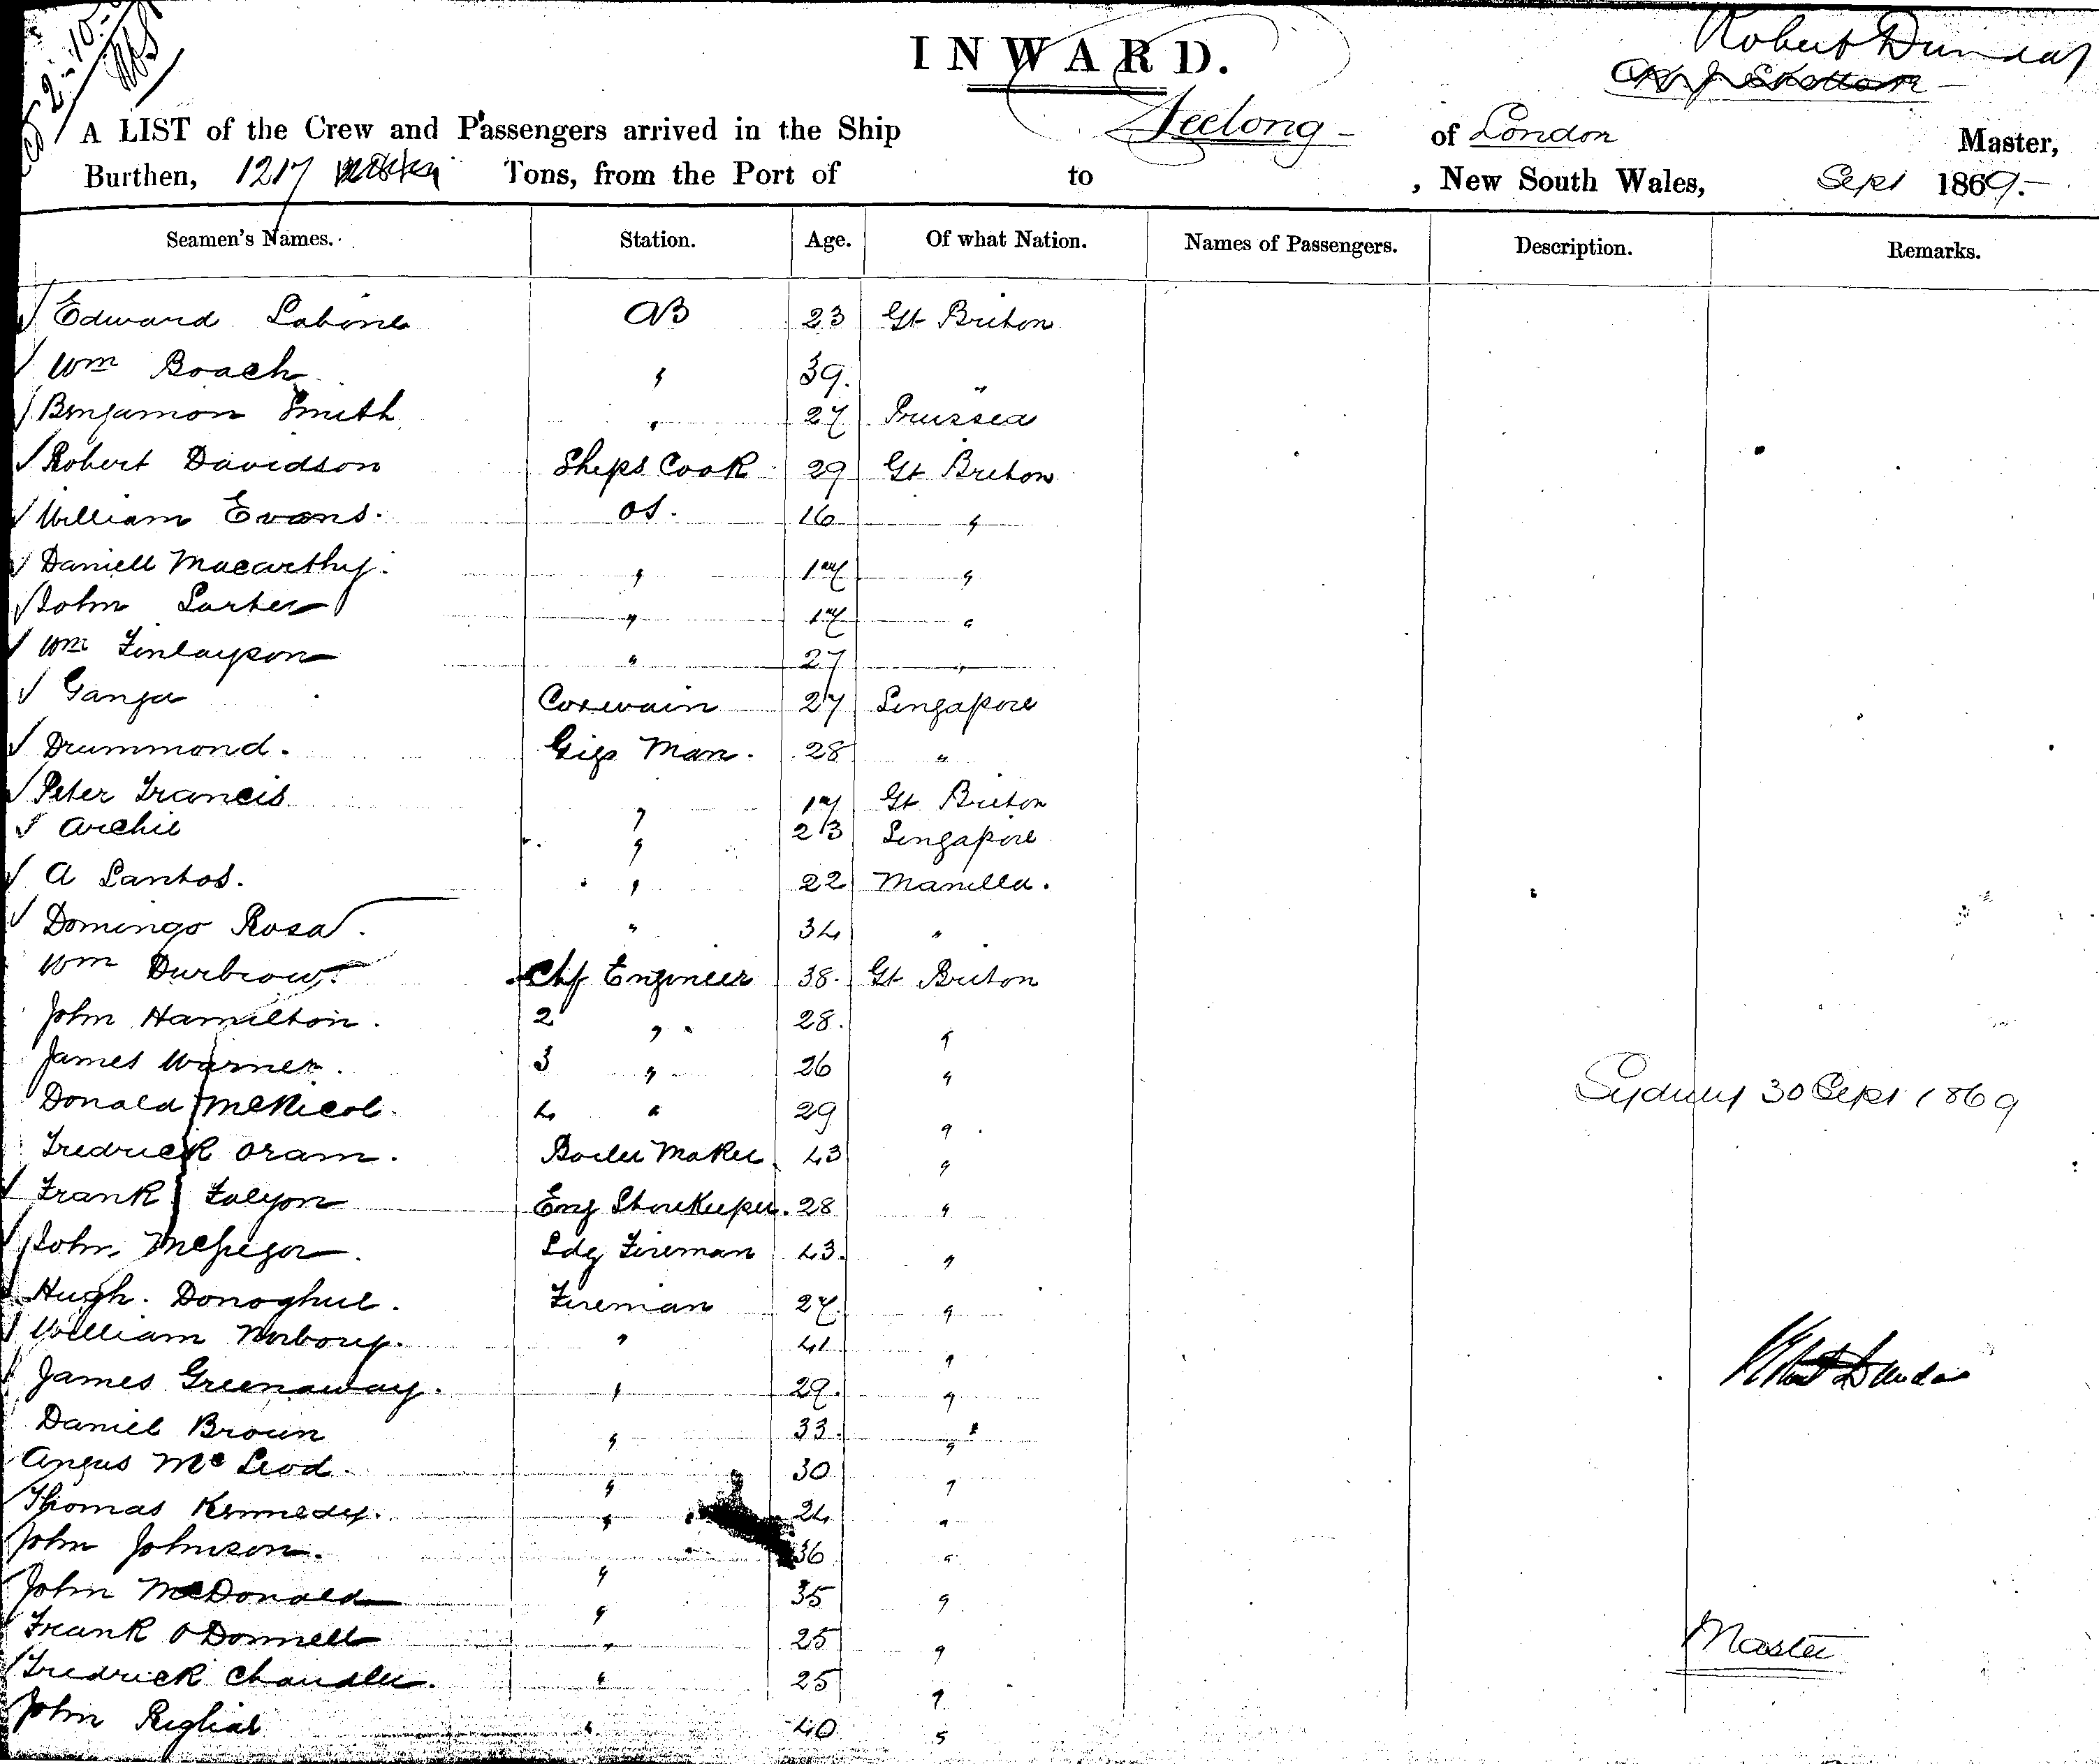 INWARD.
Robert Dundas
A LIST of the Crew and Passengers arrived in the Ship Geelong of London Master,
Burthen, 1217 Tons, from the Port of to , New South Wales, Sept 1869.
Seamen's Names. Station. Age. Of what Nation. Names of Passengers. Description. Remarks.
Edward AB 23 Gt Briton
Wm Boach " 39. "
Benjamon Smith " 27 Prussea
Robert Davidson Ships Cook 29 Gt Briton
William Evans. OS. 16 "
Daniell Macarthy. " 17 "
John " 17 "
Wm Finlayson " 27 "
Ganga Coxwain 27 Singapore
Drummond. Gigs Man. 28 "
Peter Francis " 17 Gt Briton
Archie " 23 Singapore
A Santos. " 22 Manilla.
Domingo Rosa. " 34 "
Wm Durbrow. Chf Engineer 38. Gt Briton
John Hamilton. 2 " 28. "
James Warner. 3 " 26 "
Donald McNicol. 4 " 29 "
Sydney 30 Sept 1869
Fredrick Oram. Boiler Maker 43 "
Frank Eng Storekeeper. 28 "
John McGregor. Ldg Fireman 43. "
Hugh. Donoghue. Fireman 27. "
William " 41 "
James Greenaway. " 29. "
Daniel Broun " 33. "
Angus McLeod. " 30 "
Thomas Kennedy. " 24 "
John Johnson. " 36 "
John McDonald " 35 "
Frank O Donnell " 25 "
Master
Fredrick Chandler. " 25 "
John " 40 "